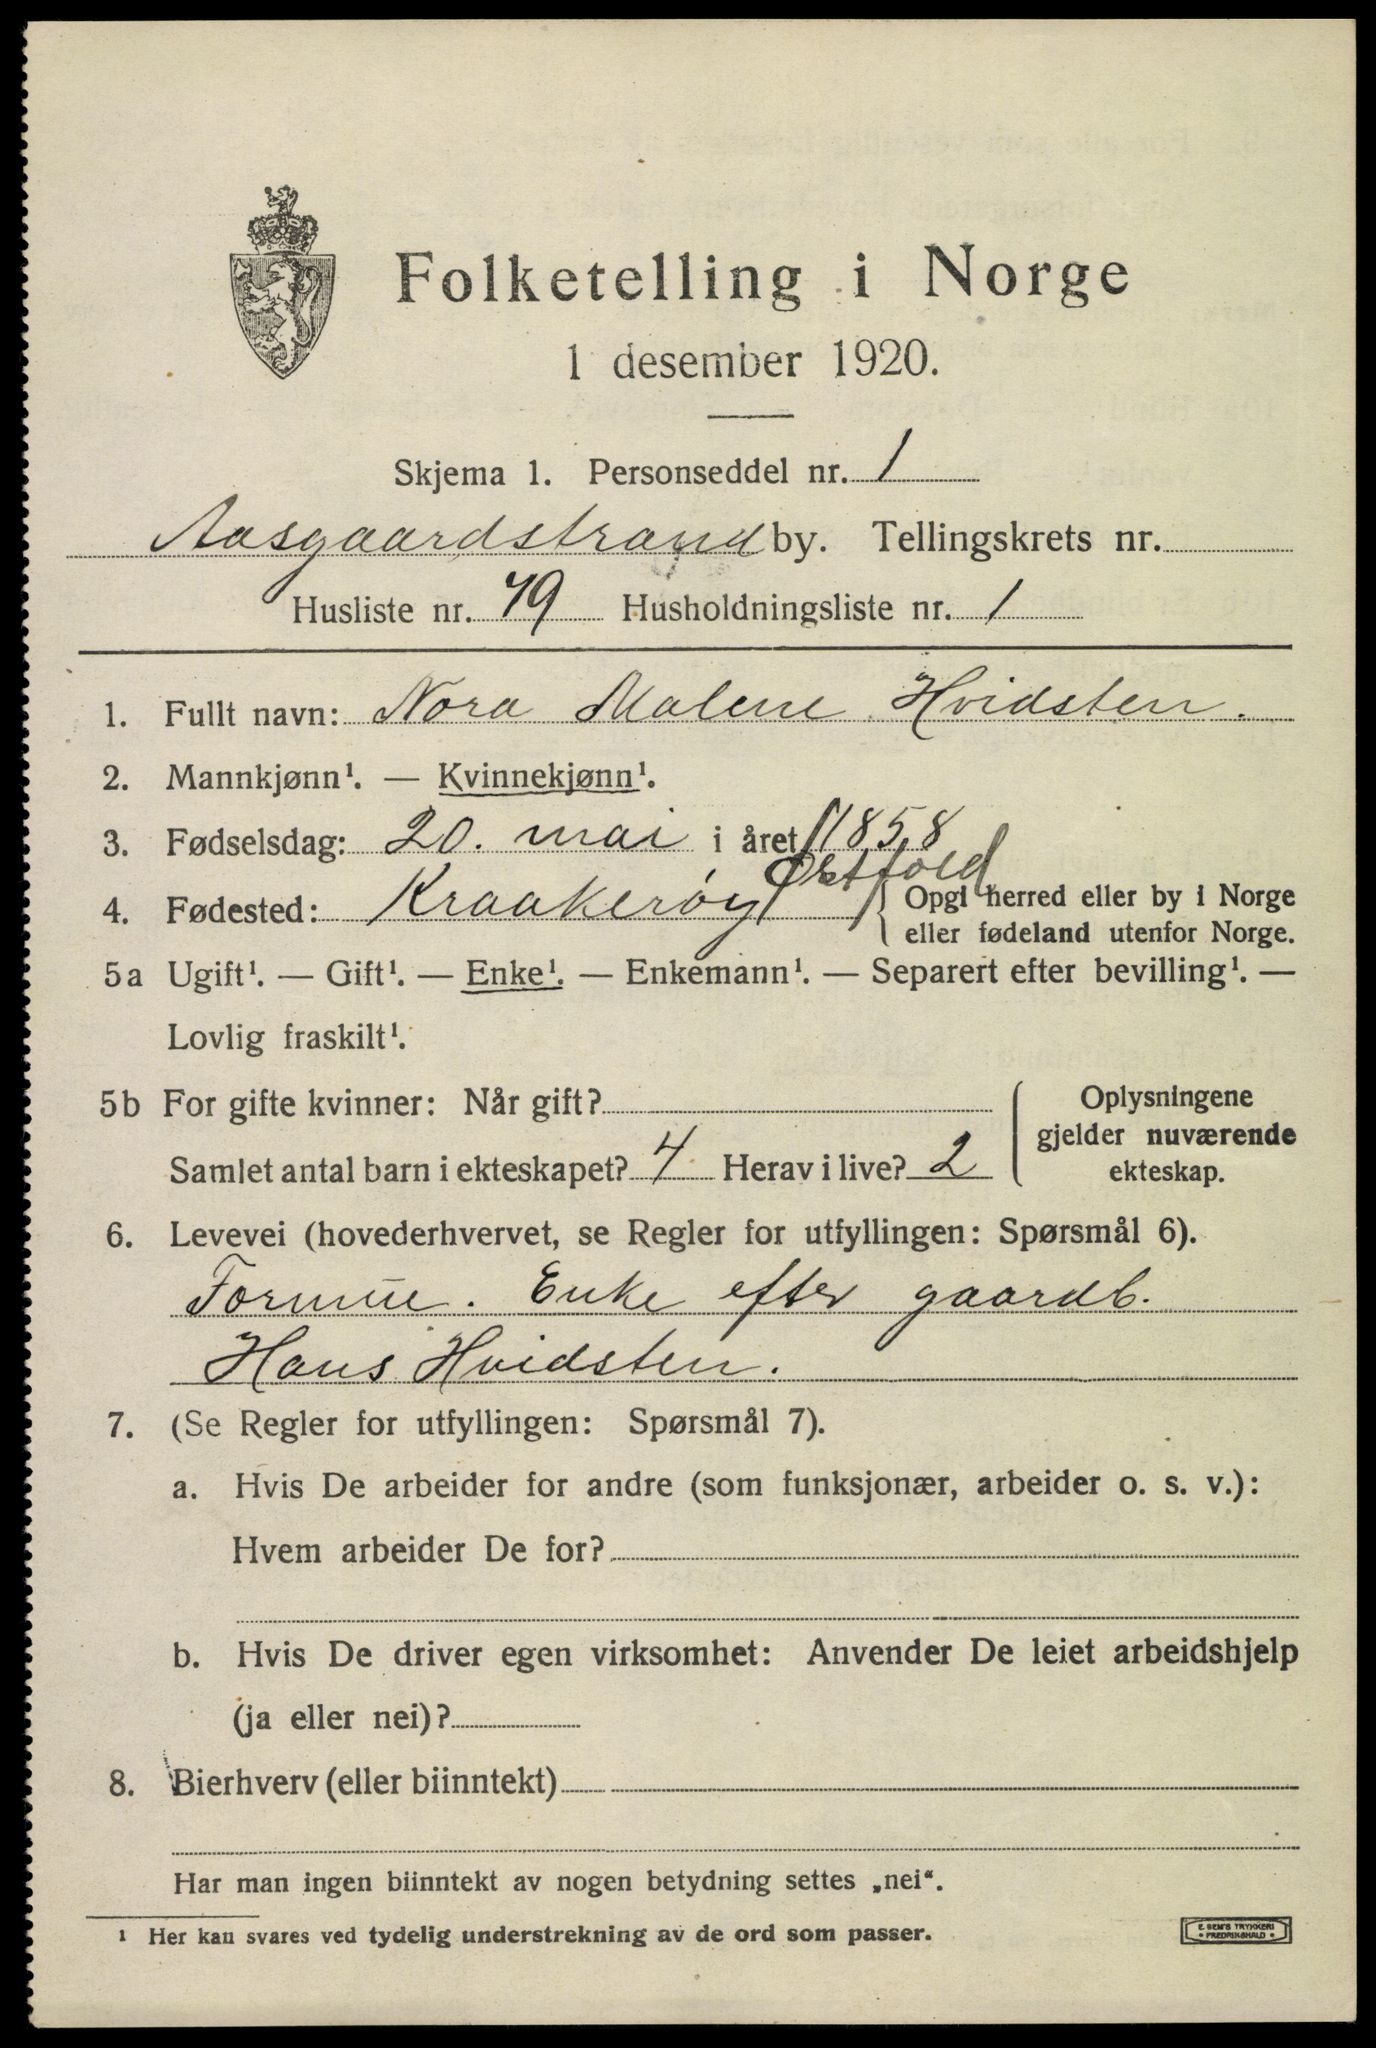 Folketelling i Norge
1 desember 1920.
Skjema 1. Personseddel nr. 1
Aasgaardstrand by. Tellingskrets nr.
Husliste nr. 79 Husholdningsliste nr. 1
1. Fullt navn: Nora Malene Hvidsten.
2. Mannkjønn¹. — Kvinnekjønn¹.
3. Fødselsdag: 20. mai i året 1858
4. Fødested: Kraakerøy Østfold { Opgi herred eller by i Norge
eller fødeland utenfor Norge.
5a Ugift¹. — Gift¹. — Enke¹. — Enkemann¹. — Separert efter bevilling¹. —
Lovlig fraskilt¹.
5b For gifte kvinner: Når gift?
Samlet antal barn i ekteskapet? 4 Herav i live? 2
Oplysningene
gjelder nuværende
ekteskap.
6. Levevei (hovederhvervet, se Regler for utfyllingen: Spørsmål 6).
Formue. Enke efter gaardb.
Hans Hvidsten.
7. (Se Regler for utfyllingen: Spørsmål 7).
a. Hvis De arbeider for andre (som funksjonær, arbeider o. s. v.):
Hvem arbeider De for?
b. Hvis De driver egen virksomhet: Anvender De leiet arbeidshjelp
(ja eller nei)?
8. Bierhverv (eller biinntekt)
Har man ingen biinntekt av nogen betydning settes „nei“.
¹ Her kan svares ved tydelig understrekning av de ord som passer.
E. SEM'S TRYKKERI
• FREDRIKSHALD •